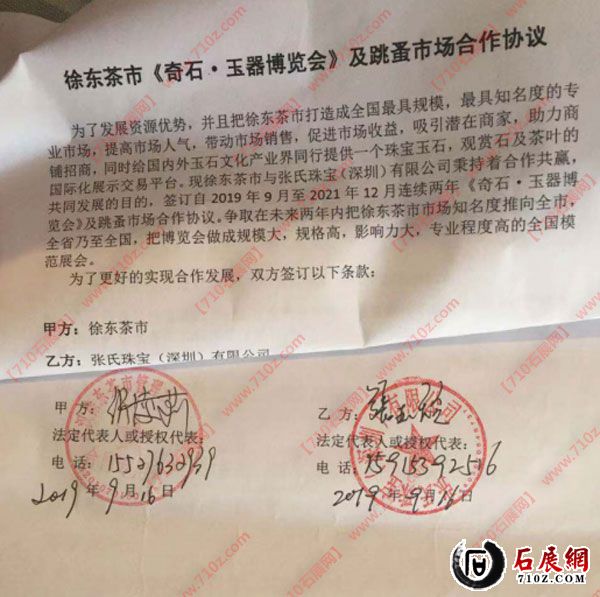 徐东茶市《奇石·玉器博览会》及跳蚤市场合作协议
为了发展资源优势，并且把徐东茶市打造成全国最具规模，最具知名度的专
业市场，提高市场人气，带动市场销售，促进市场收益，吸引潜在商家，助力商
铺招商，同时给国内外玉石文化产业界同行提供一个珠宝玉石，观赏石及茶叶的
国际化展示交易平台。现徐东茶市与张氏珠宝（深圳）有限公司秉持着合作共赢，
共同发展的目的，签订自 2019 年 9 月至 2021 年 12 月连续两年《奇石·玉器博
览会》及跳蚤市场合作协议。争取在未来两年内把徐东茶市市场知名度推向全市，
全省乃至全国，把博览会做成规模大，规格高，影响力大，专业程度高的全国模
范展会。
为了更好的实现合作发展，双方签订以下条款：
甲方：徐东茶市
乙方：张氏珠宝（深圳）有限公司
甲 方：
法定代表人或授权代表：
电 话：
2019 年 9 月 16 日
乙 方：
法定代表人或授权代表：
电 话：15915392516
2019 年 9 月 16 日
【710石展网】www.710z.com
石展網
710Z.COM